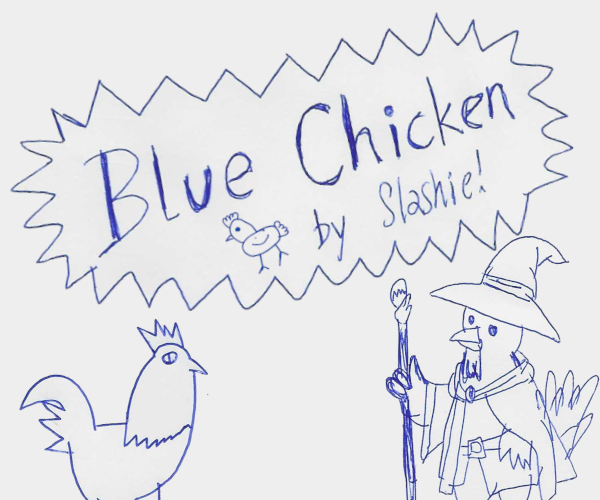 Blue Chicken
by Slashie!